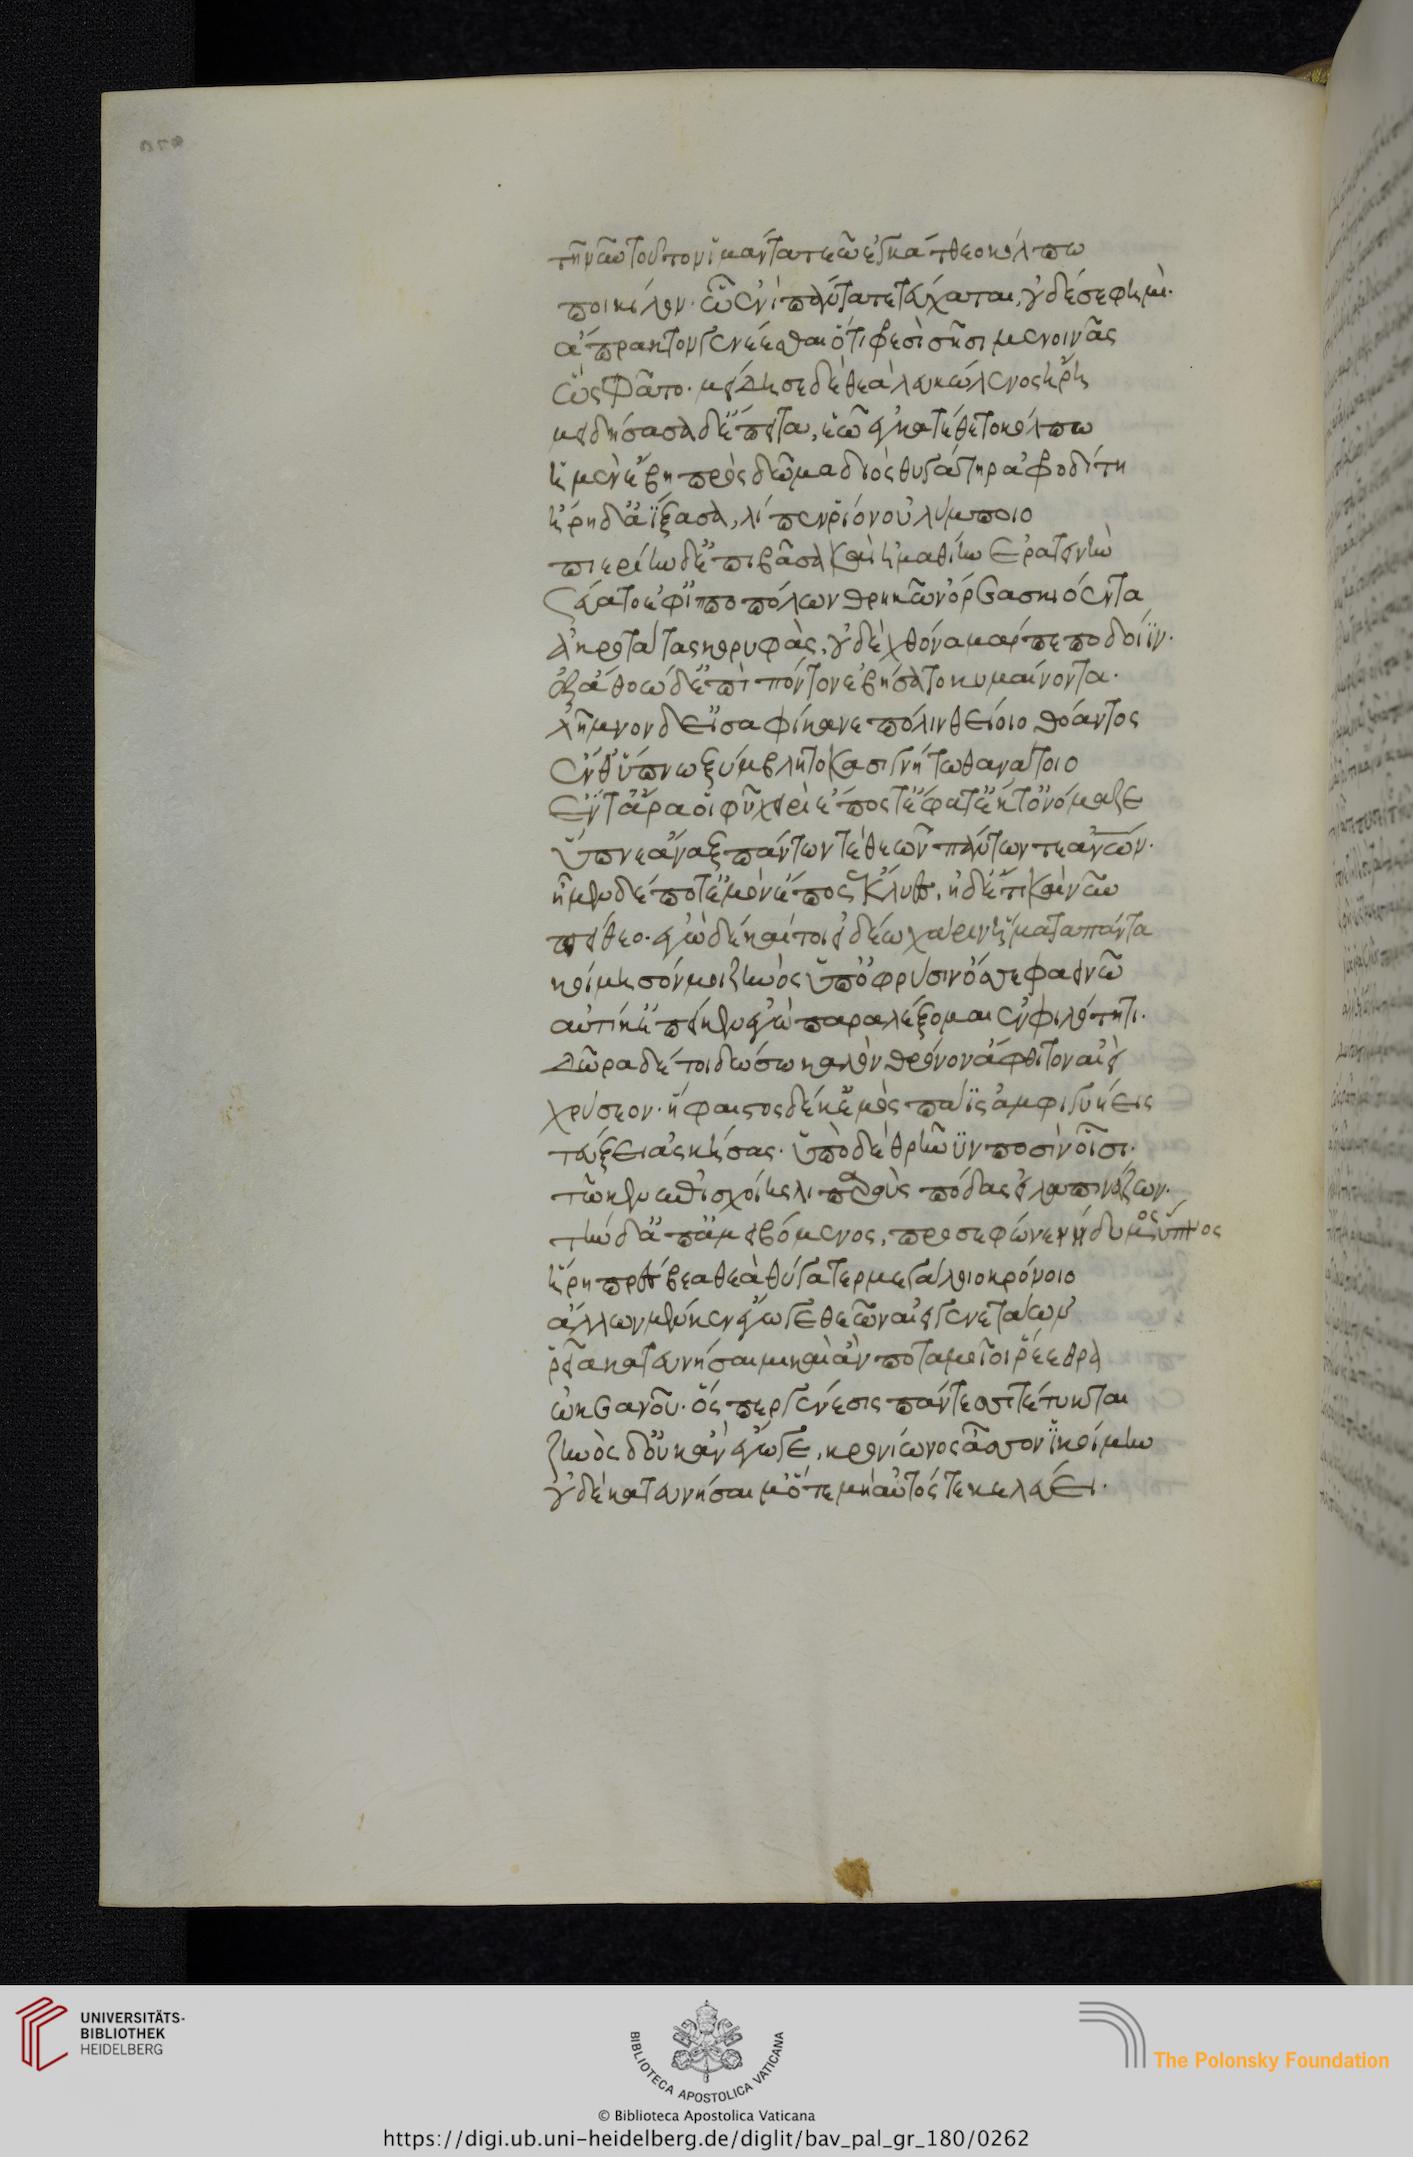 τῆ νῦν τοῦτον ἱμάντα τεῶ ἐγκάτθεο κόλπω
ποικίλον· ὧ ἐνὶ πάντα τετεύχαται, οὐδέ σε φημὶ·
ἄπρακτον γενέεσθαι ὅ τι φρεσὶ σῆσι μενοινᾶς
ὣς φάτο· μείδησε δὲ θεὰ λευκώλενος ἥρη
μειδήσασα δ' ἔπειτα, ἑῶ ἐγκάτθετο κόλπω
ἡ μὲν ἔβη πρὸς δῶμα διὸς θυγάτηρ ἀφροδίτη
ἥρη δ' ἀΐξασα, λίπεν ῥίον οὐλύμποιο
πιερίην δ' ἐπιβᾶσα καὶ ἠμαθίην ἐρατεινὴν
σεύατ' ἐφ' ἱπποπόλων θρηκῶν ὄρεα σκιόεντα
ἀκροτάτας κορυφὰς, οὐδὲ χθόνα μάρπτε ποδοίϊν·
ἐξ ἀθόω δ' ἐπὶ πόντον ἐβήσατο κυμαίνοντα·
λῆμνον δ' εἰσαφίκανε πόλιν θείοιο θόαντος
ἔνθ' ὕπνω ξύμβλητο κασιγνήτω θανάτοιο
ἔν τ' ἄρα οἱ φῦ χειρὶ ἔπος τ' ἔφατ' ἔκ τ' ὀνόμαζε
ὕπνε ἄναξ πάντων τὲ θεῶν πάντων τε ἀνων·
ἠμὲν δή ποτ' ἐμὸν ἔπος ἔκλυες, ἠδ' ἔτι καὶ νῦν
πείθεο· ἐγὼ δέ κέ τοι εἰδέω χάριν ἤματα πάντα
κοίμησόν μοι ζηνὸς ὑπ' ὀφρύσιν ὄσσε φαεινὼ
αὐτίκ' ἐπεί κεν ἐγὼ παραλέξομαι ἐν φιλότητι·
δῶρα δέ τοι δώσω καλὸν θρόνον ἄφθιτον αἰεὶ
χρύσεον· ἥφαιστος δέ κ' ἐμὸς πάϊς ἀμφιγυήεις
τεύξει ἀσκήσας· ὑπὸ δὲ θρῆνϋν ποσὶν ἥσει·
τῶ κεν ἐπισχοίης λιπαροὺς πόδας εἰλαπινάζων·
τὴν δ' ἀπαμειβόμενος, προσεφώνεε νήδυμος ὕπνος
ἥρη πρέσβα θεὰ θύγατερ μεγάλοιο κρόνοιο
ἄλλον μέν κεν ἔγωγε θεῶν αἰειγενετάων
ῥεῖα κατευνήσαιμι καὶ ἂν ποταμοῖο ῥέεθρα
ὠκεανοῦ· ὅς περ γένεσις πάντεσσι τέτυκται
ζηνὸς δ' οὐκ ἂν ἔγωγε, κρονίωνος ἆσσον ἱκοίμην
οὐδὲ κατευνήσαιμ' ὅτε μὴ αὐτός γε κελεύει·
UNIVERSITÄTS-
BIBLIOTHEK
HEIDELBERG
BIBLIOTECA APOSTOLICA VATICANA
The Polonsky Foundation
© Biblioteca Apostolica Vaticana
https://digi.ub.uni-heidelberg.de/diglit/bav_pal_gr_180/0262